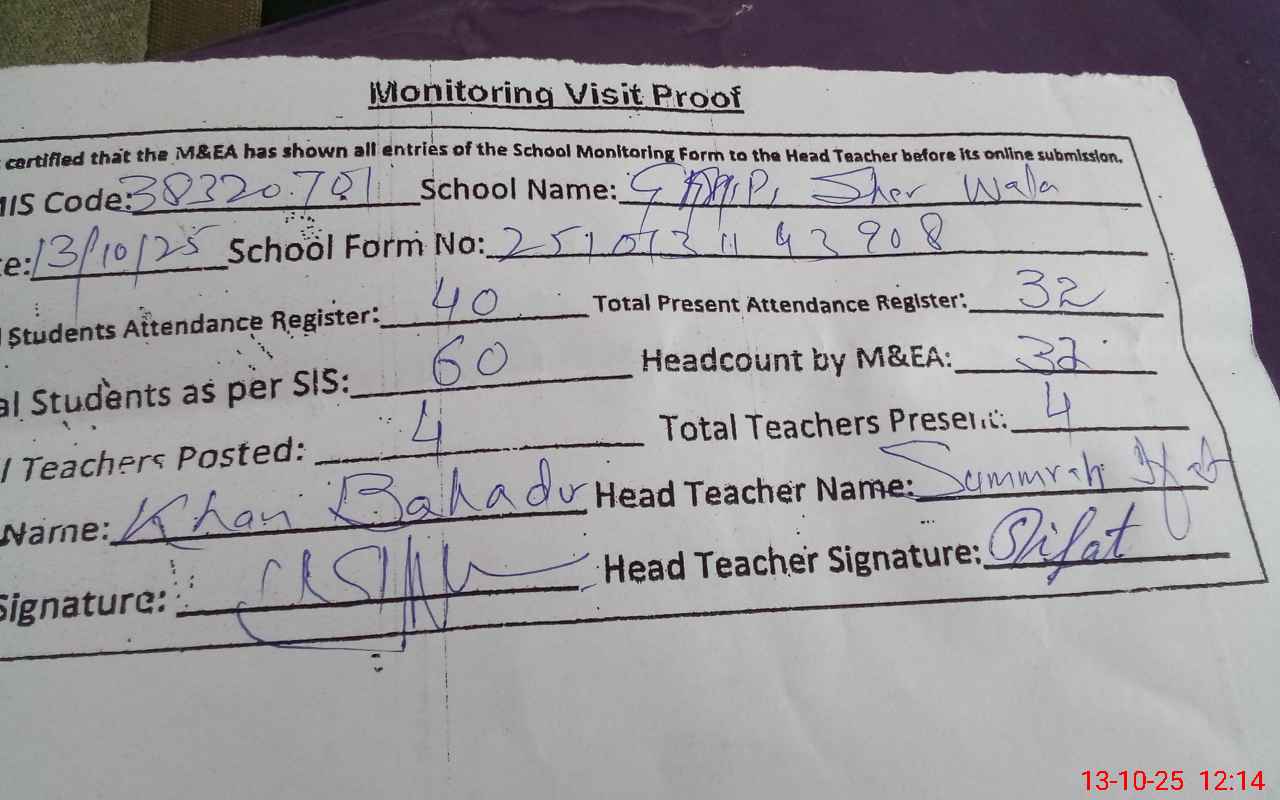 Monitoring Visit Proof
certified that the M&EA has shown all entries of the School Monitoring Form to the Head Teacher before its online submission.
MIS Code: 38320701 School Name: Sher Wala
e: 13/10/25 School Form No: 251013 11 43908
Students Attendance Register: 40 Total Present Attendance Register: 32
al Students as per SIS: 60 Headcount by M&EA: 32
l Teachers Posted: 4 Total Teachers Present: 4
Name: Khan Bahadur Head Teacher Name: Summrah
Signature: Head Teacher Signature: Sifat
13-10-25 12:14